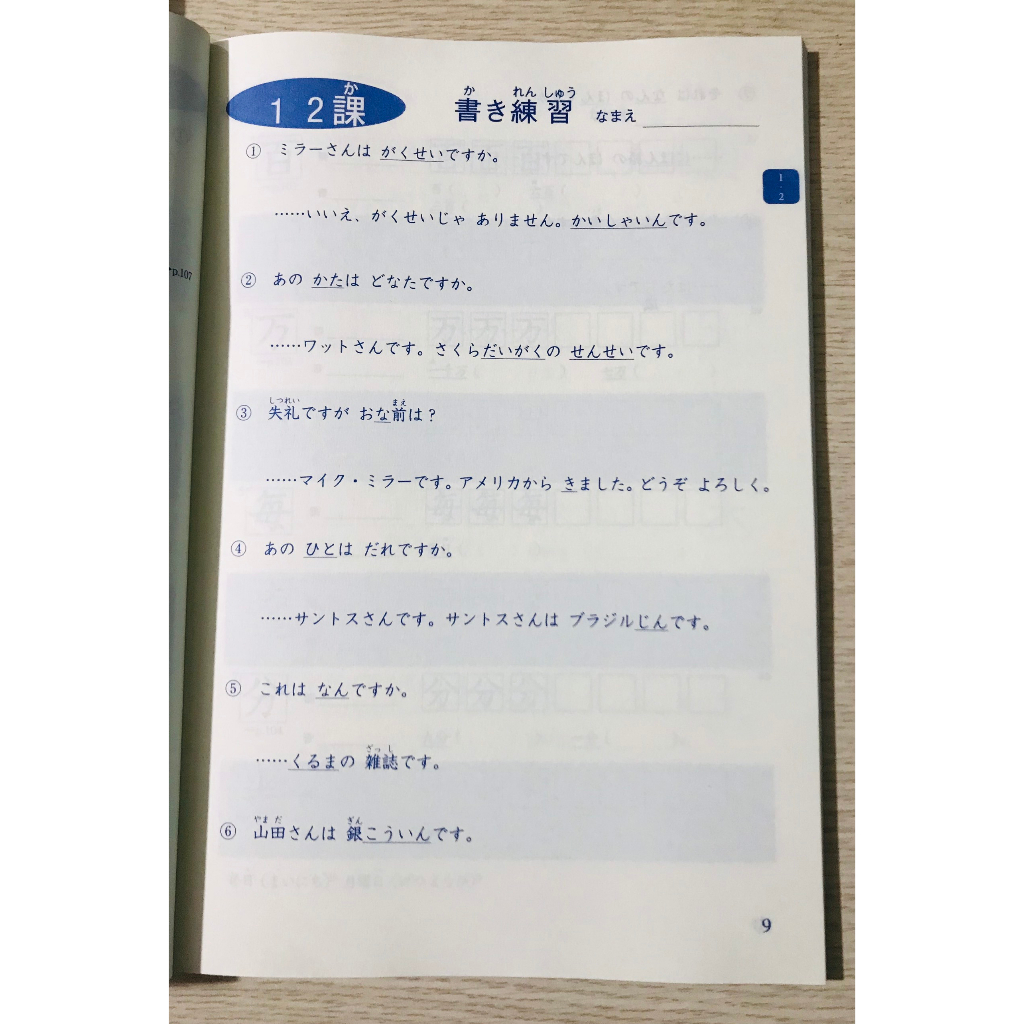 12課 書き練習 なまえ
① ミラーさんは がくせいですか。
……いいえ、がくせいじゃ ありません。かいしゃいんです。
② あの かたは どなたですか。
……ワットさんです。さくらだいがくの せんせいです。
③ 失礼ですが おな前は？
……マイク・ミラーです。アメリカから きました。どうぞ よろしく。
④ あの ひとは だれですか。
……サントスさんです。サントスさんは ブラジルじんです。
⑤ これは なんですか。
……くるまの 雑誌です。
⑥ 山田さんは 銀こういんです。
1・2
p.107
9